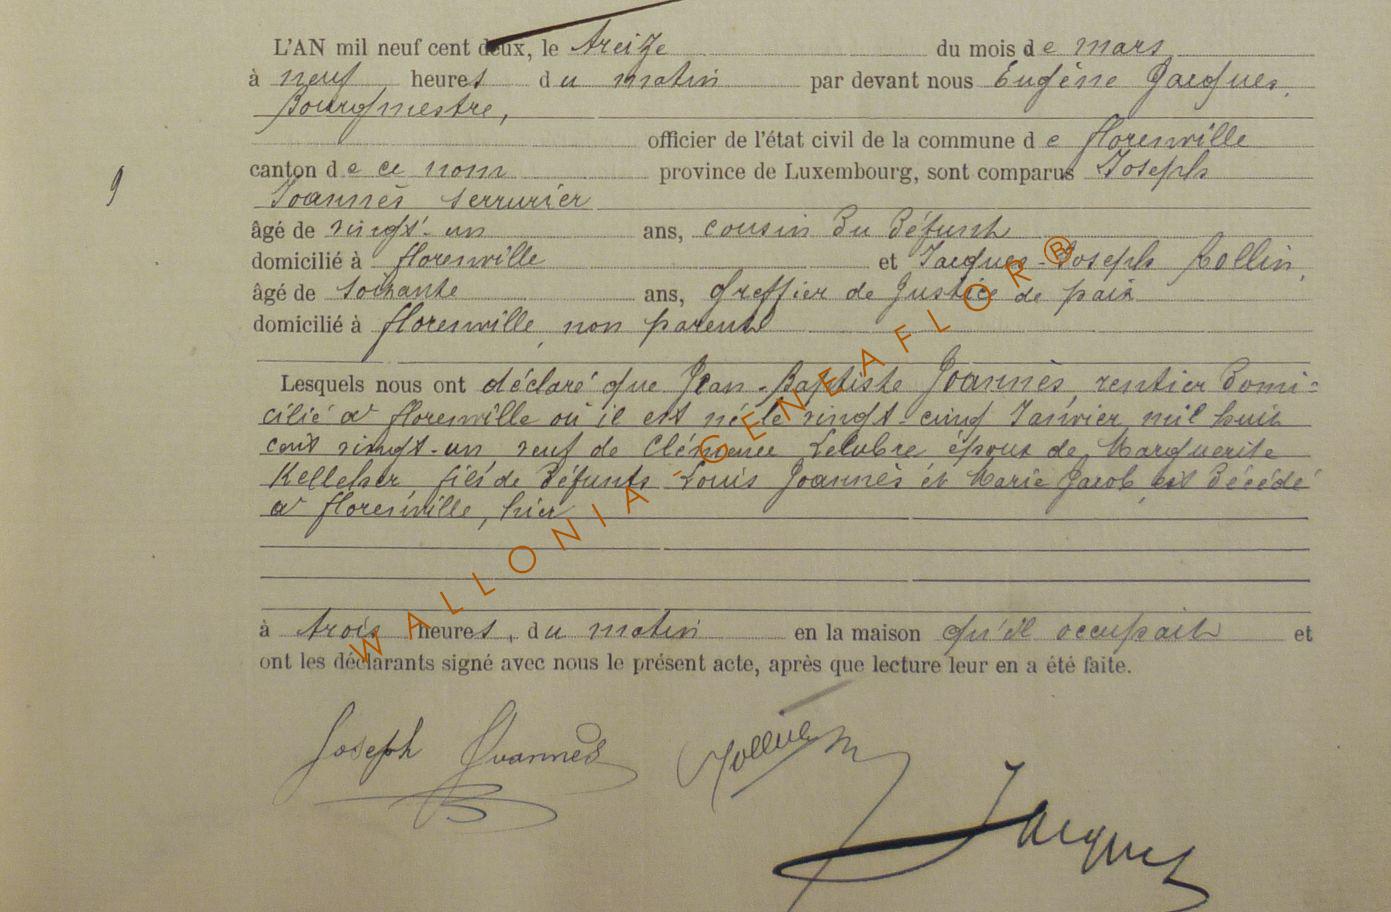 L'AN mil neuf cent deux, le treize du mois de mars
à neuf heures du matin par devant nous Eugène Jacques,
Bourgmestre,
officier de l'état civil de la commune de florenville
9
canton de ce nom province de Luxembourg, sont comparus Joseph
Joannès serrurier
âgé de vingt-un ans, cousin du défunt
domicilié à florenville et Jacques-Joseph Collin,
âgé de soixante ans, Greffier de Justice de paix
domicilié à florenville, non parent
Lesquels nous ont déclaré que Jean-Baptiste Joannès rentier domi-
cilié à florenville où il est né le vingt-cinq Janvier mil huit
cent vingt-un veuf de Clémence Lelubre époux de Marguerite
Kelleher fils de défunts Louis Joannès et Marie Jacob, est décédé
à florenville, hier
à trois heures, du matin en la maison qu'il occupait et
ont les déclarants signé avec nous le présent acte, après que lecture leur en a été faite.
Joseph Joannès Collin
Jacques
WALLONIA - GENEAFLOR ®